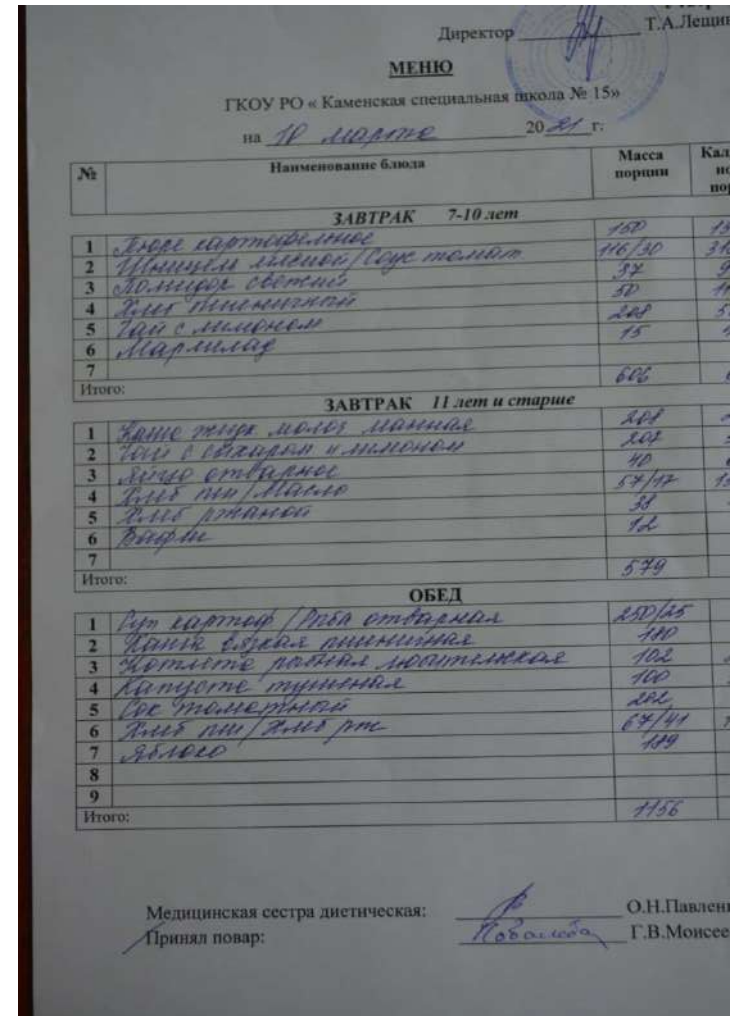 Директор Т.А.Лещин
МЕНЮ
ГКОУ РО « Каменская специальная школа № 15»
на 10 марта 2021 г.
№ Наименование блюда Масса порции Кал
ЗАВТРАК 7-10 лет
1 Пюре картофельное 150
2 Шницель мясной/Соус томат 116/30
3 Помидор свежий 37
4 Хлеб пшеничный 50
5 Чай с лимоном 208
6 Мармелад 15
7
Итого: 606
ЗАВТРАК 11 лет и старше
1 Каша жидк молоч манная 208
2 Чай с сахаром и лимоном 202
3 Яйцо отварное 40
4 Хлеб пш/Масло 57/17
5 Хлеб ржаной 38
6 Вафли 12
7
Итого: 579
ОБЕД
1 Суп картоф/Рыба отварная 250/25
2 Каша вязкая пшеничная 180
3 Котлета рыбная любительская 102
4 Капуста тушеная 100
5 Сок томатный 202
6 Хлеб пш/Хлеб рж 67/41
7 Яблоко 189
8
9
Итого: 1156
Медицинская сестра диетическая: О.Н.Павлен
Принял повар: Г.В.Моисее